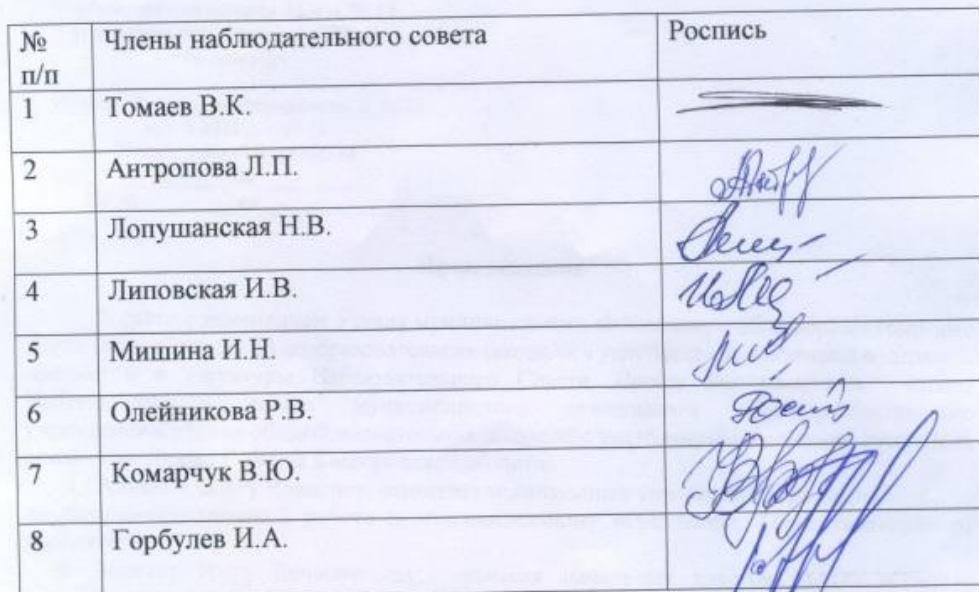 № п/п Члены наблюдательного совета Роспись
1 Томаев В.К.
2 Антропова Л.П.
3 Лопушанская Н.В.
4 Липовская И.В.
5 Мишина И.Н.
6 Олейникова Р.В.
7 Комарчук В.Ю
8 Горбулев И.А.